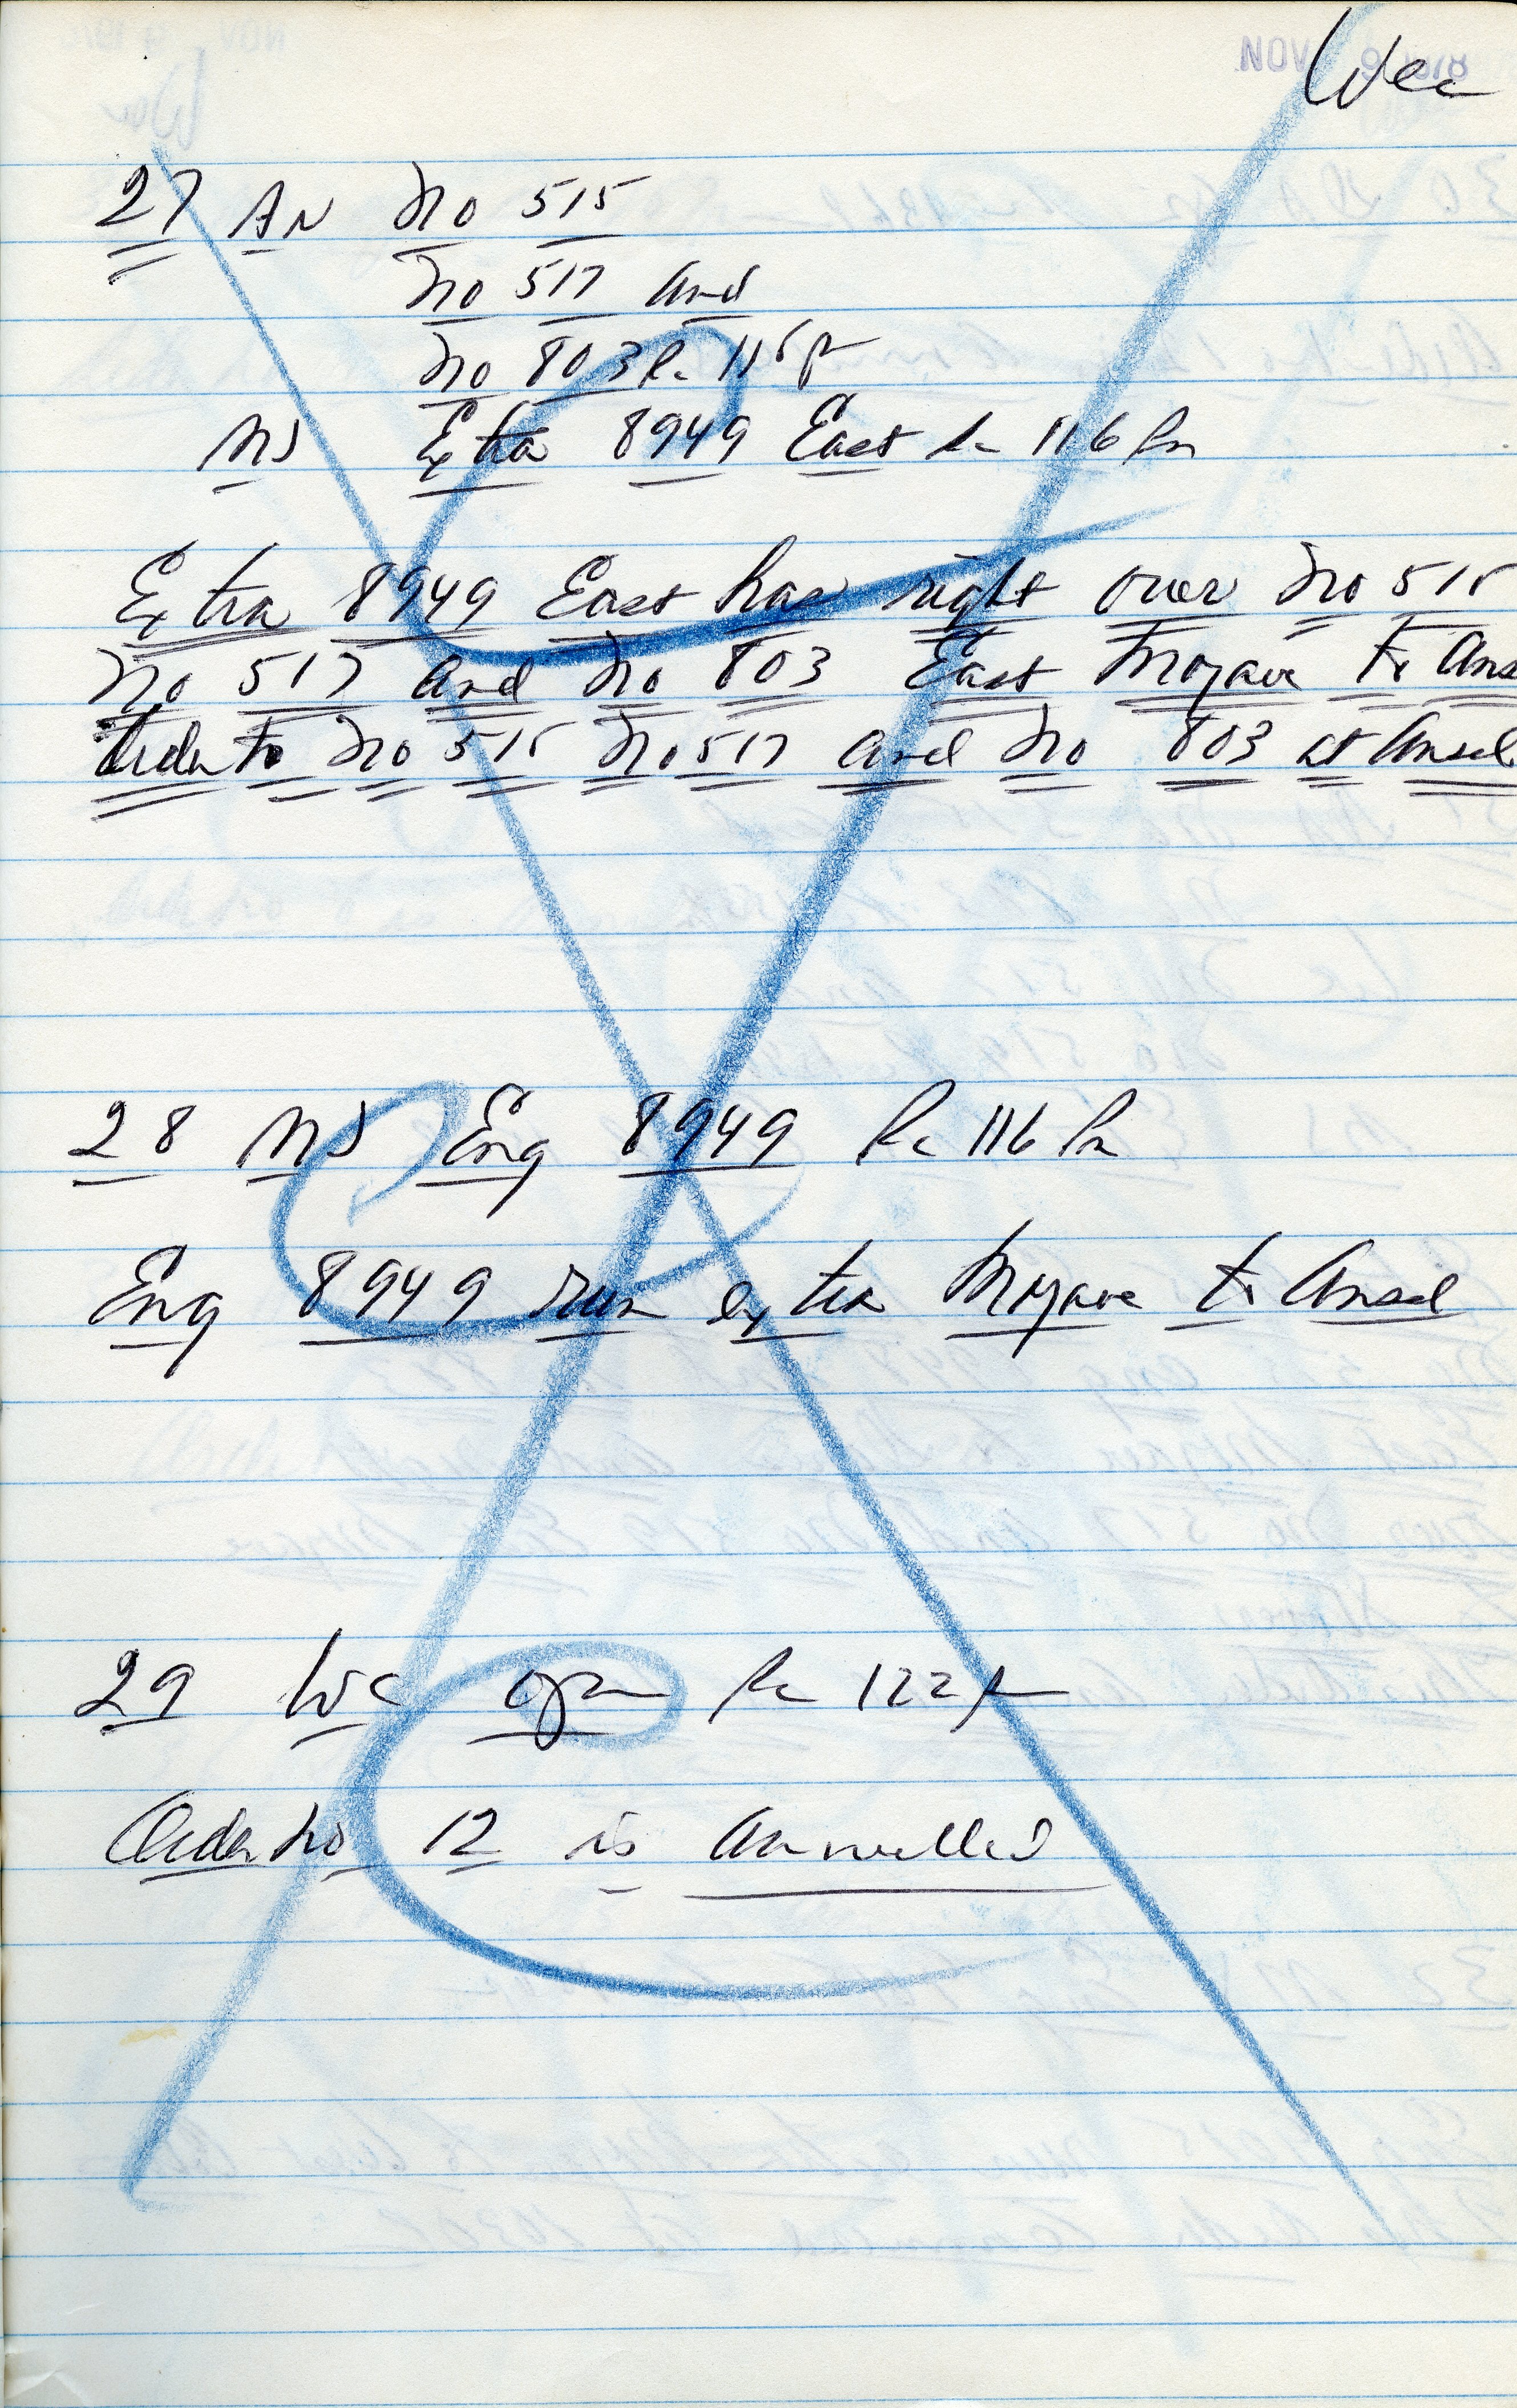 27 AN No 515
No 517 and
No 803 Rc 115 pm
MJ Extra 8949 East Rc 116 Pm
Extra 8949 East has right over No 515
No 517 and No 803 East Mojave to Ans
Order to No 515 No 517 and No 803 at Ansel
28 MJ Eng 8949 Rc 116 Pm
Eng 8949 run extra Mojave to Ansel
29 WC opr Rc 122 pm
Order No 12 is annulled